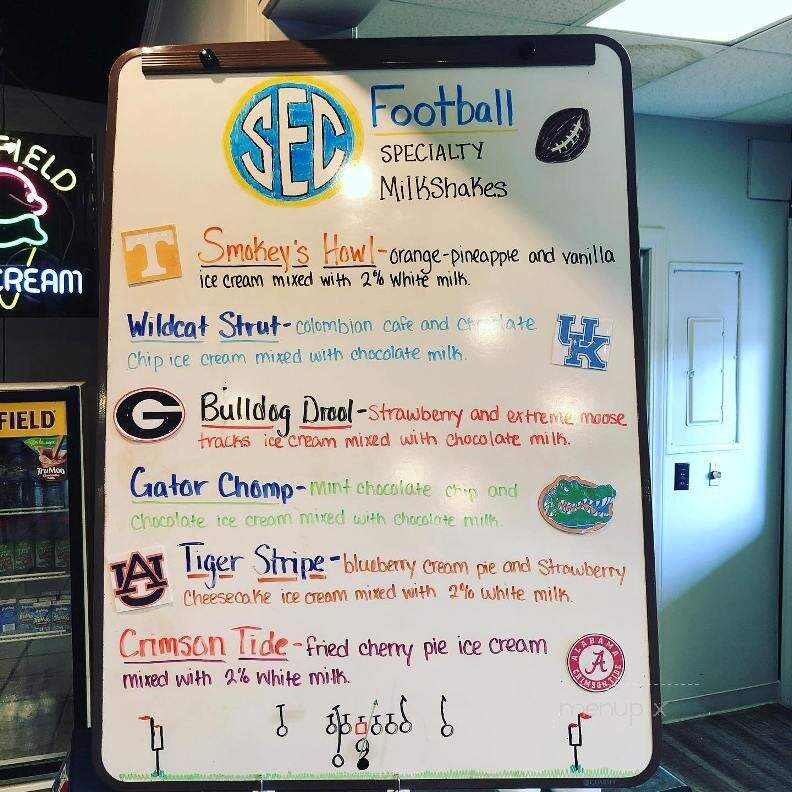 SEC Football
SPECIALTY
Milkshakes
T Smokey's Howl-orange-pineapple and vanilla
ice cream mixed with 2% white milk.
Wildcat Strut-colombian cafe and chocolate
chip ice cream mixed with chocolate milk.
UK
G Bulldog Drool-strawberry and extreme moose
tracks ice cream mixed with chocolate milk.
Gator Chomp-mint chocolate chip and
chocolate ice cream mixed with chocolate milk.
AU Tiger Stripe-blueberry cream pie and strawberry
cheesecake ice cream mixed with 2% white milk.
Crimson Tide-fried cherry pie ice cream
mixed with 2% white milk.
ALABAMA
A
CRIMSON TIDE
FIELD
CREAM
FIELD
TruMoo
menupix